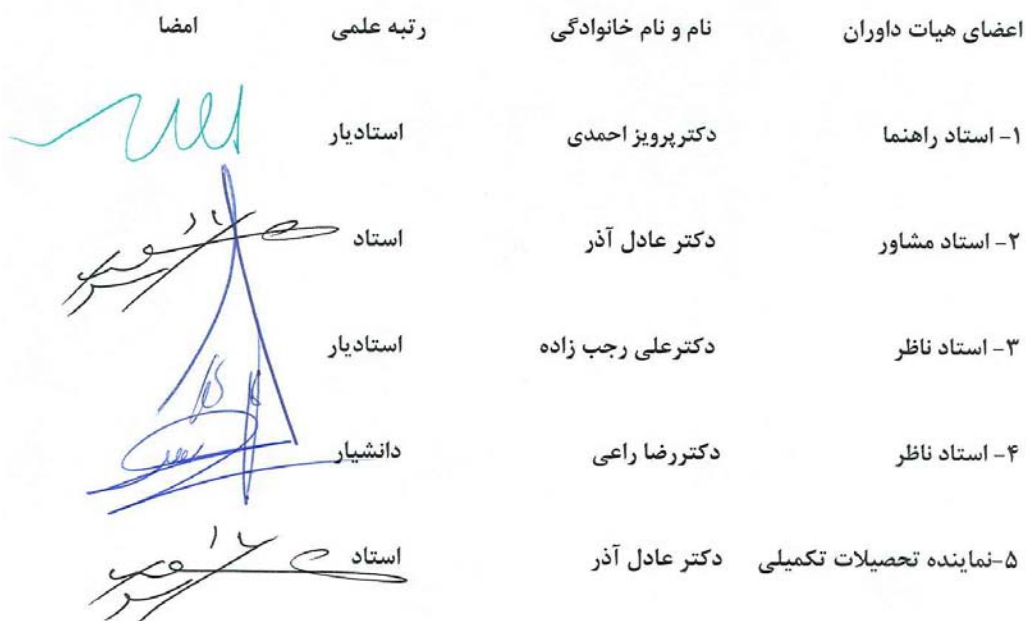 اعضای هیات داوران نام و نام خانوادگی رتبه علمی امضا
۱- استاد راهنما دکترپرویز احمدی استادیار
۲- استاد مشاور دکتر عادل آذر استاد
۳- استاد ناظر دکترعلی رجب زاده استادیار
۴- استاد ناظر دکتررضا راعی دانشیار
۵-نماینده تحصیلات تکمیلی دکتر عادل آذر استاد